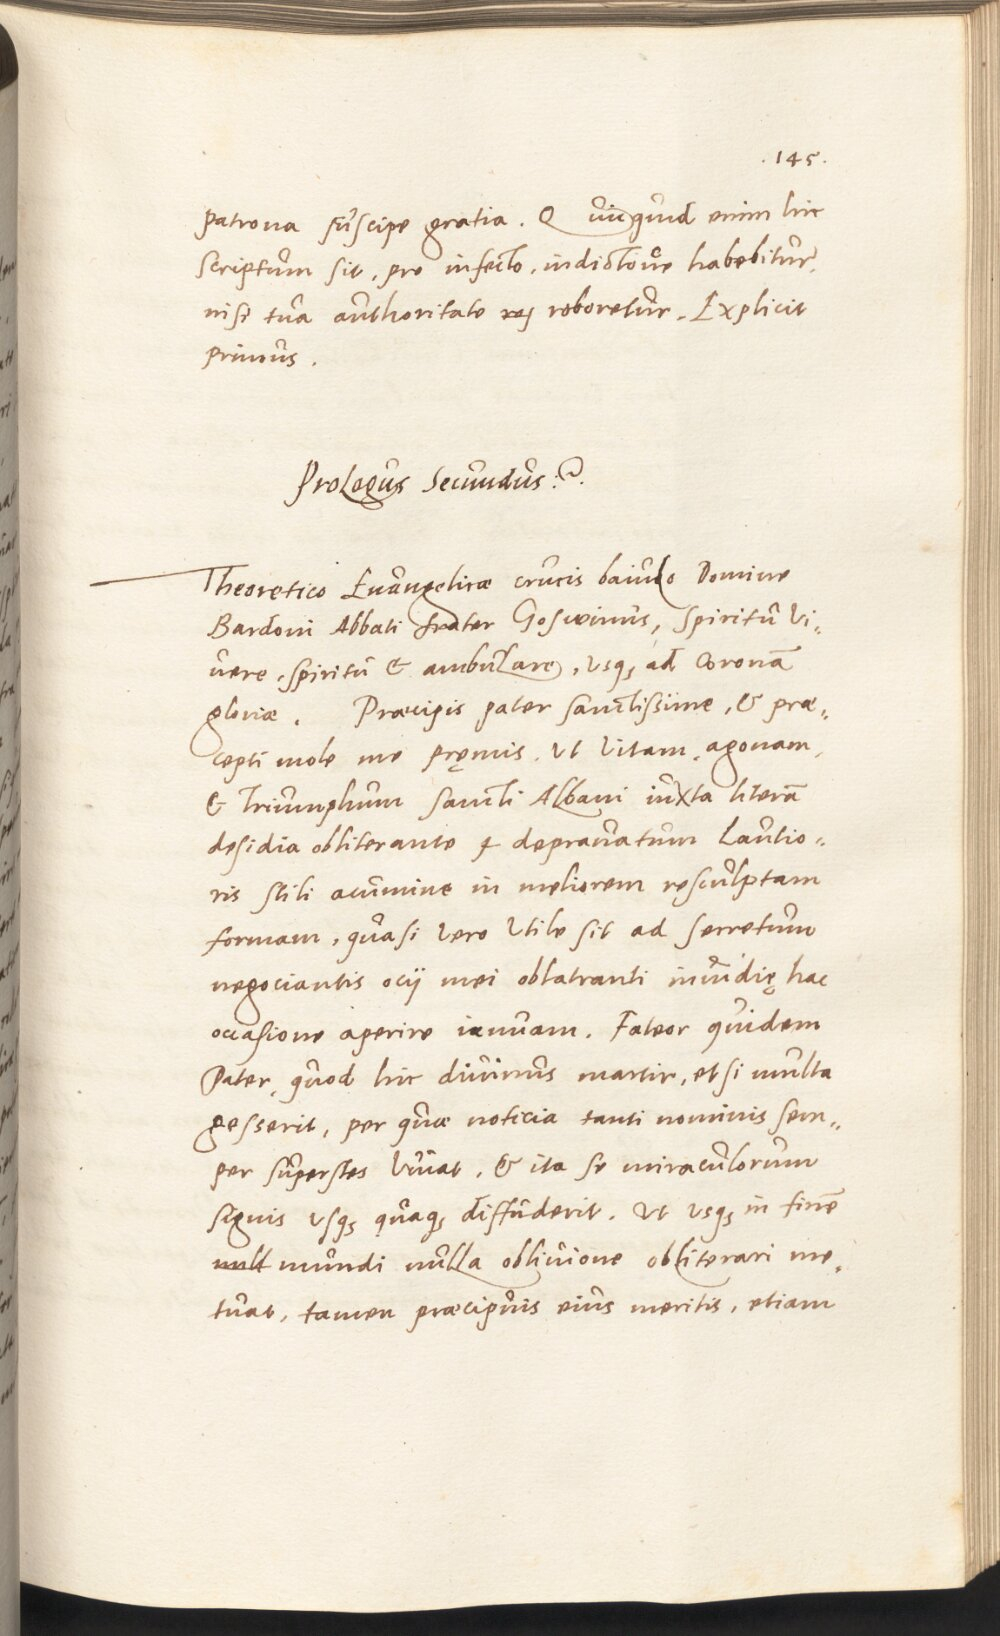 .145.
patrona suscipe gratia. Quicquid enim hic
scriptum sit, pro infecto, indictoue habebitur,
nisi tua authoritate roboretur. Explicit
primus.
Prologus Secundus
Theoretico Euangelicæ crucis baiulo Domine
Bardoni Abbati frater Goswinus, spiritu vi„
uere, spiritu & ambulare, usq3 ad coronā
gloriæ. Præcipis pater sanctissime, & præ„
cepti mole me pręmis, ut vitam, agonam,
& triumphum sancti Albani iuxta literā
desidia obliterante deprauatum lautio„
ris stili acumine in meliorem resculptam
formam, quasi vero utile sit ad serretum
negociantis ocij mei oblatranti inuidię hac
occasione aperire ianuam. Fateor quidem
Pater, quod hic diuinus martir, etsi multa
gesserit, per quæ noticia tanti nominis sem„
per superstes viuat, & ita se miraculorum
signis usq3 quaq3 diffuderit, ut usq3 in finē
null mundi nulla obliuione obliterari me„
tuat, tamen præcipuis eius meritis, etiam